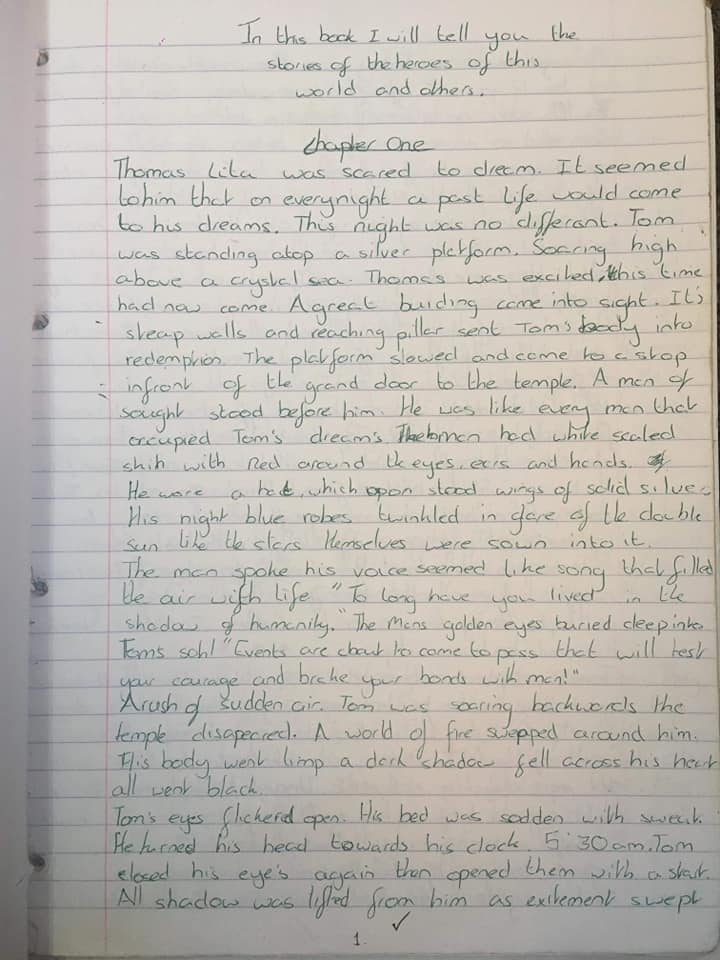 In this book I will tell you the
stories of the heroes of this
world and others.
Chapter One
Thomas Lita was scared to dream. It seemed
to him that on everynight a past life would come
to his dreams. This night was no differant. Tom
was standing atop a silver platform. Soaring high
above a crystal sea. Thomas was excited, this time
had now come. A great building came into sight. It's
steap walls and reaching pillar sent Tom's body into
redemption. The platform slowed and came to a stop
infront of the grand door to the temple. A man of
sought stood before him. He was like every man that
occupied Tom's dream's. The man had white scaled
skin with Red around the eyes, ears and hands.
He wore a hat, which opon stood wings of solid silver.
His night blue robes twinkled in glare of the double
sun like the stars themselves were sown into it.
The man spoke his voice seemed like song that filled
the air with life "To long have you lived in the
shadow of humanity." The mans golden eyes buried deep into
Toms sohl "Events are about to come to pass that will test
your courage and brake your bonds with man!"
A rush of sudden air. Tom was soaring backwords the
temple disapeared. A world of fire swepped around him.
His body went limp a dark shadow fell across his heart
all went black.
Tom's eyes flickerd open. His bed was sodden with sweat.
He turned his head towards his clock. 5:30am. Tom
closed his eye's again then opened them with a start.
All shadow was lifted from him as exitement swept
1.